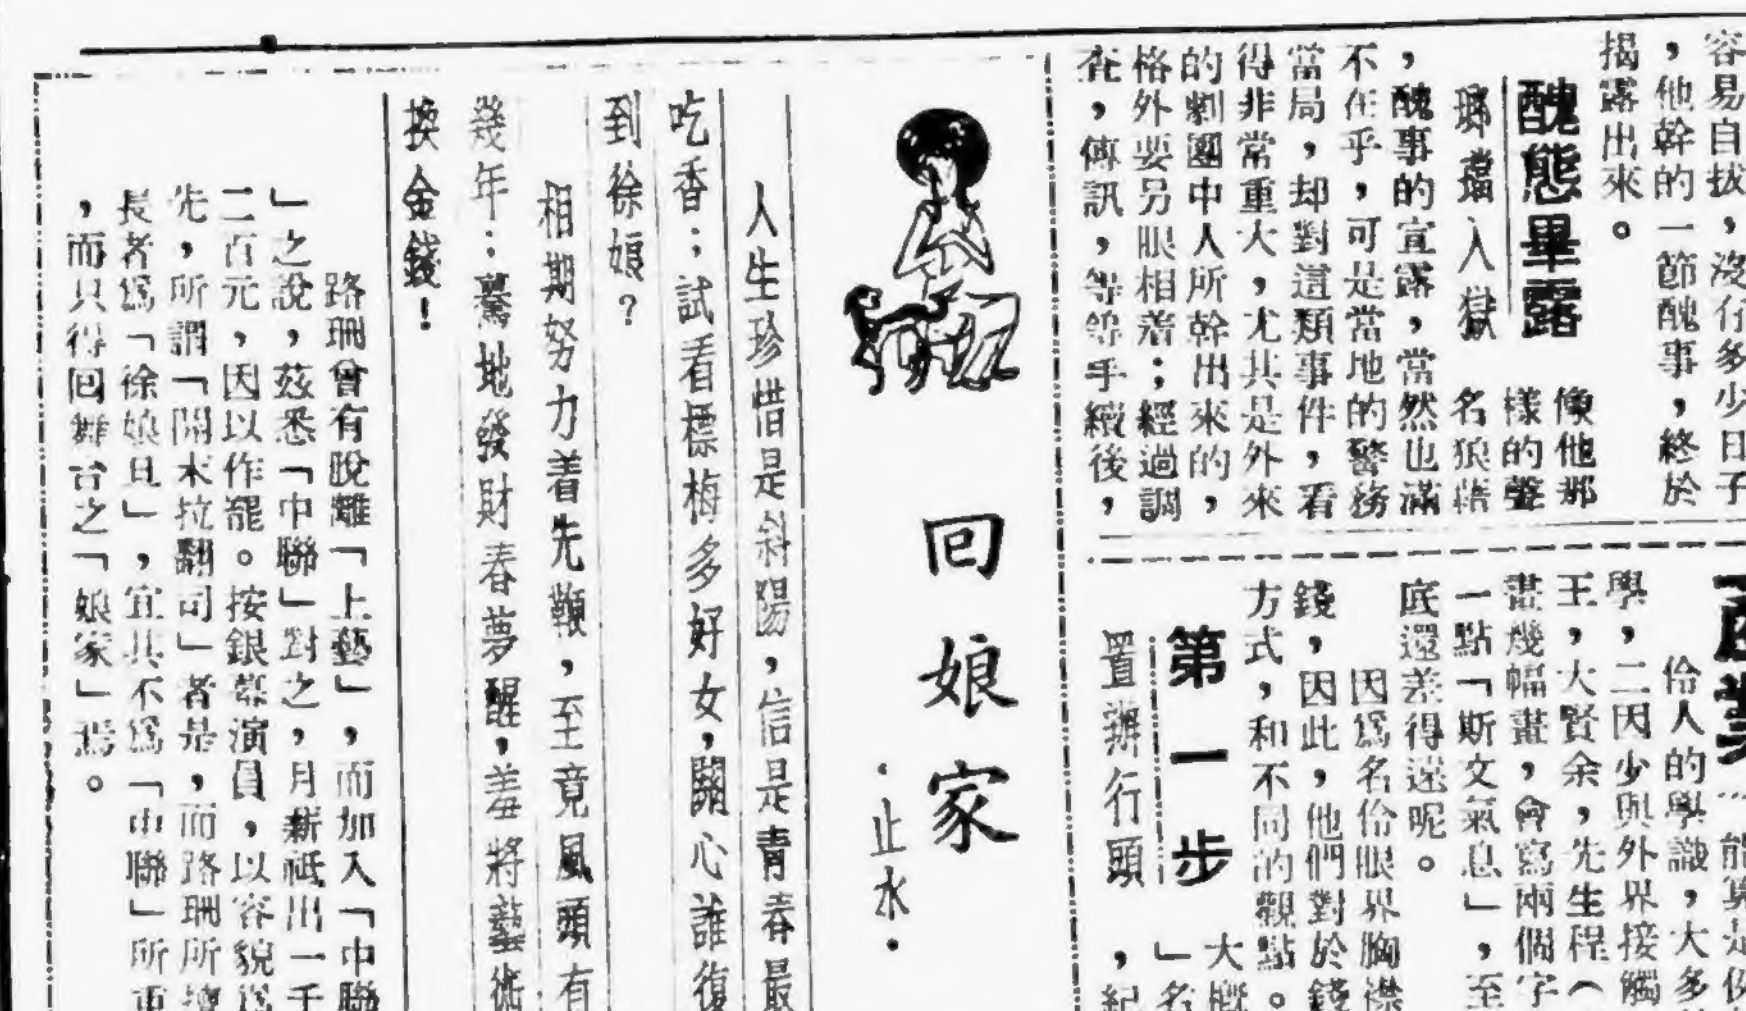 容易自拔，沒有多少日子
，他幹的一節醜事，終於
揭露出來。
醜態畢露
瑯璫入獄
像他那
樣的聲
名狼藉
，醜事的宣露，當然也滿
不在乎，可是當地的警務
當局，却對這類事件，看
得非常重大，尤其是外來
的劇團中人所幹出來的，
格外要另眼相看；經過調
查，傳訊，等等手續後，
伶人的學識，大多
學，二因少與外界接觸
王，大賢余，先生程（
畫幾幅畫，會寫兩個字
一點「斯文氣息」，至
底還差得遠呢。
因爲名伶眼界胸襟
錢，因此，他們對於錢
方式，和不同的觀點。
第一步
置辦行頭
大概
」名
，紀
回娘家
·止水·
人生珍惜是斜陽，信是青春最
吃香；試看標梅多好女，關心誰復
到徐娘？
相期努力着先鞭，至竟風頭有
幾年；驀地發財春夢醒，羞將藝術
換金錢！
路珊曾有脫離「上藝」，而加入「中聯
」之說，茲悉「中聯」對之，月薪祗出一千
二百元，因以作罷。按銀幕演員，以容貌爲
先，所謂「開末拉翻司」者是，而路珊所擅
長者爲「徐娘旦」，宜其不爲「中聯」所重
，而只得回舞台之「娘家」焉。